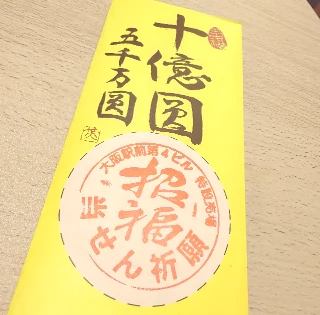 十億圓
五千万圓
大阪駅前第4ビル 特設売場
招福
当せん祈願